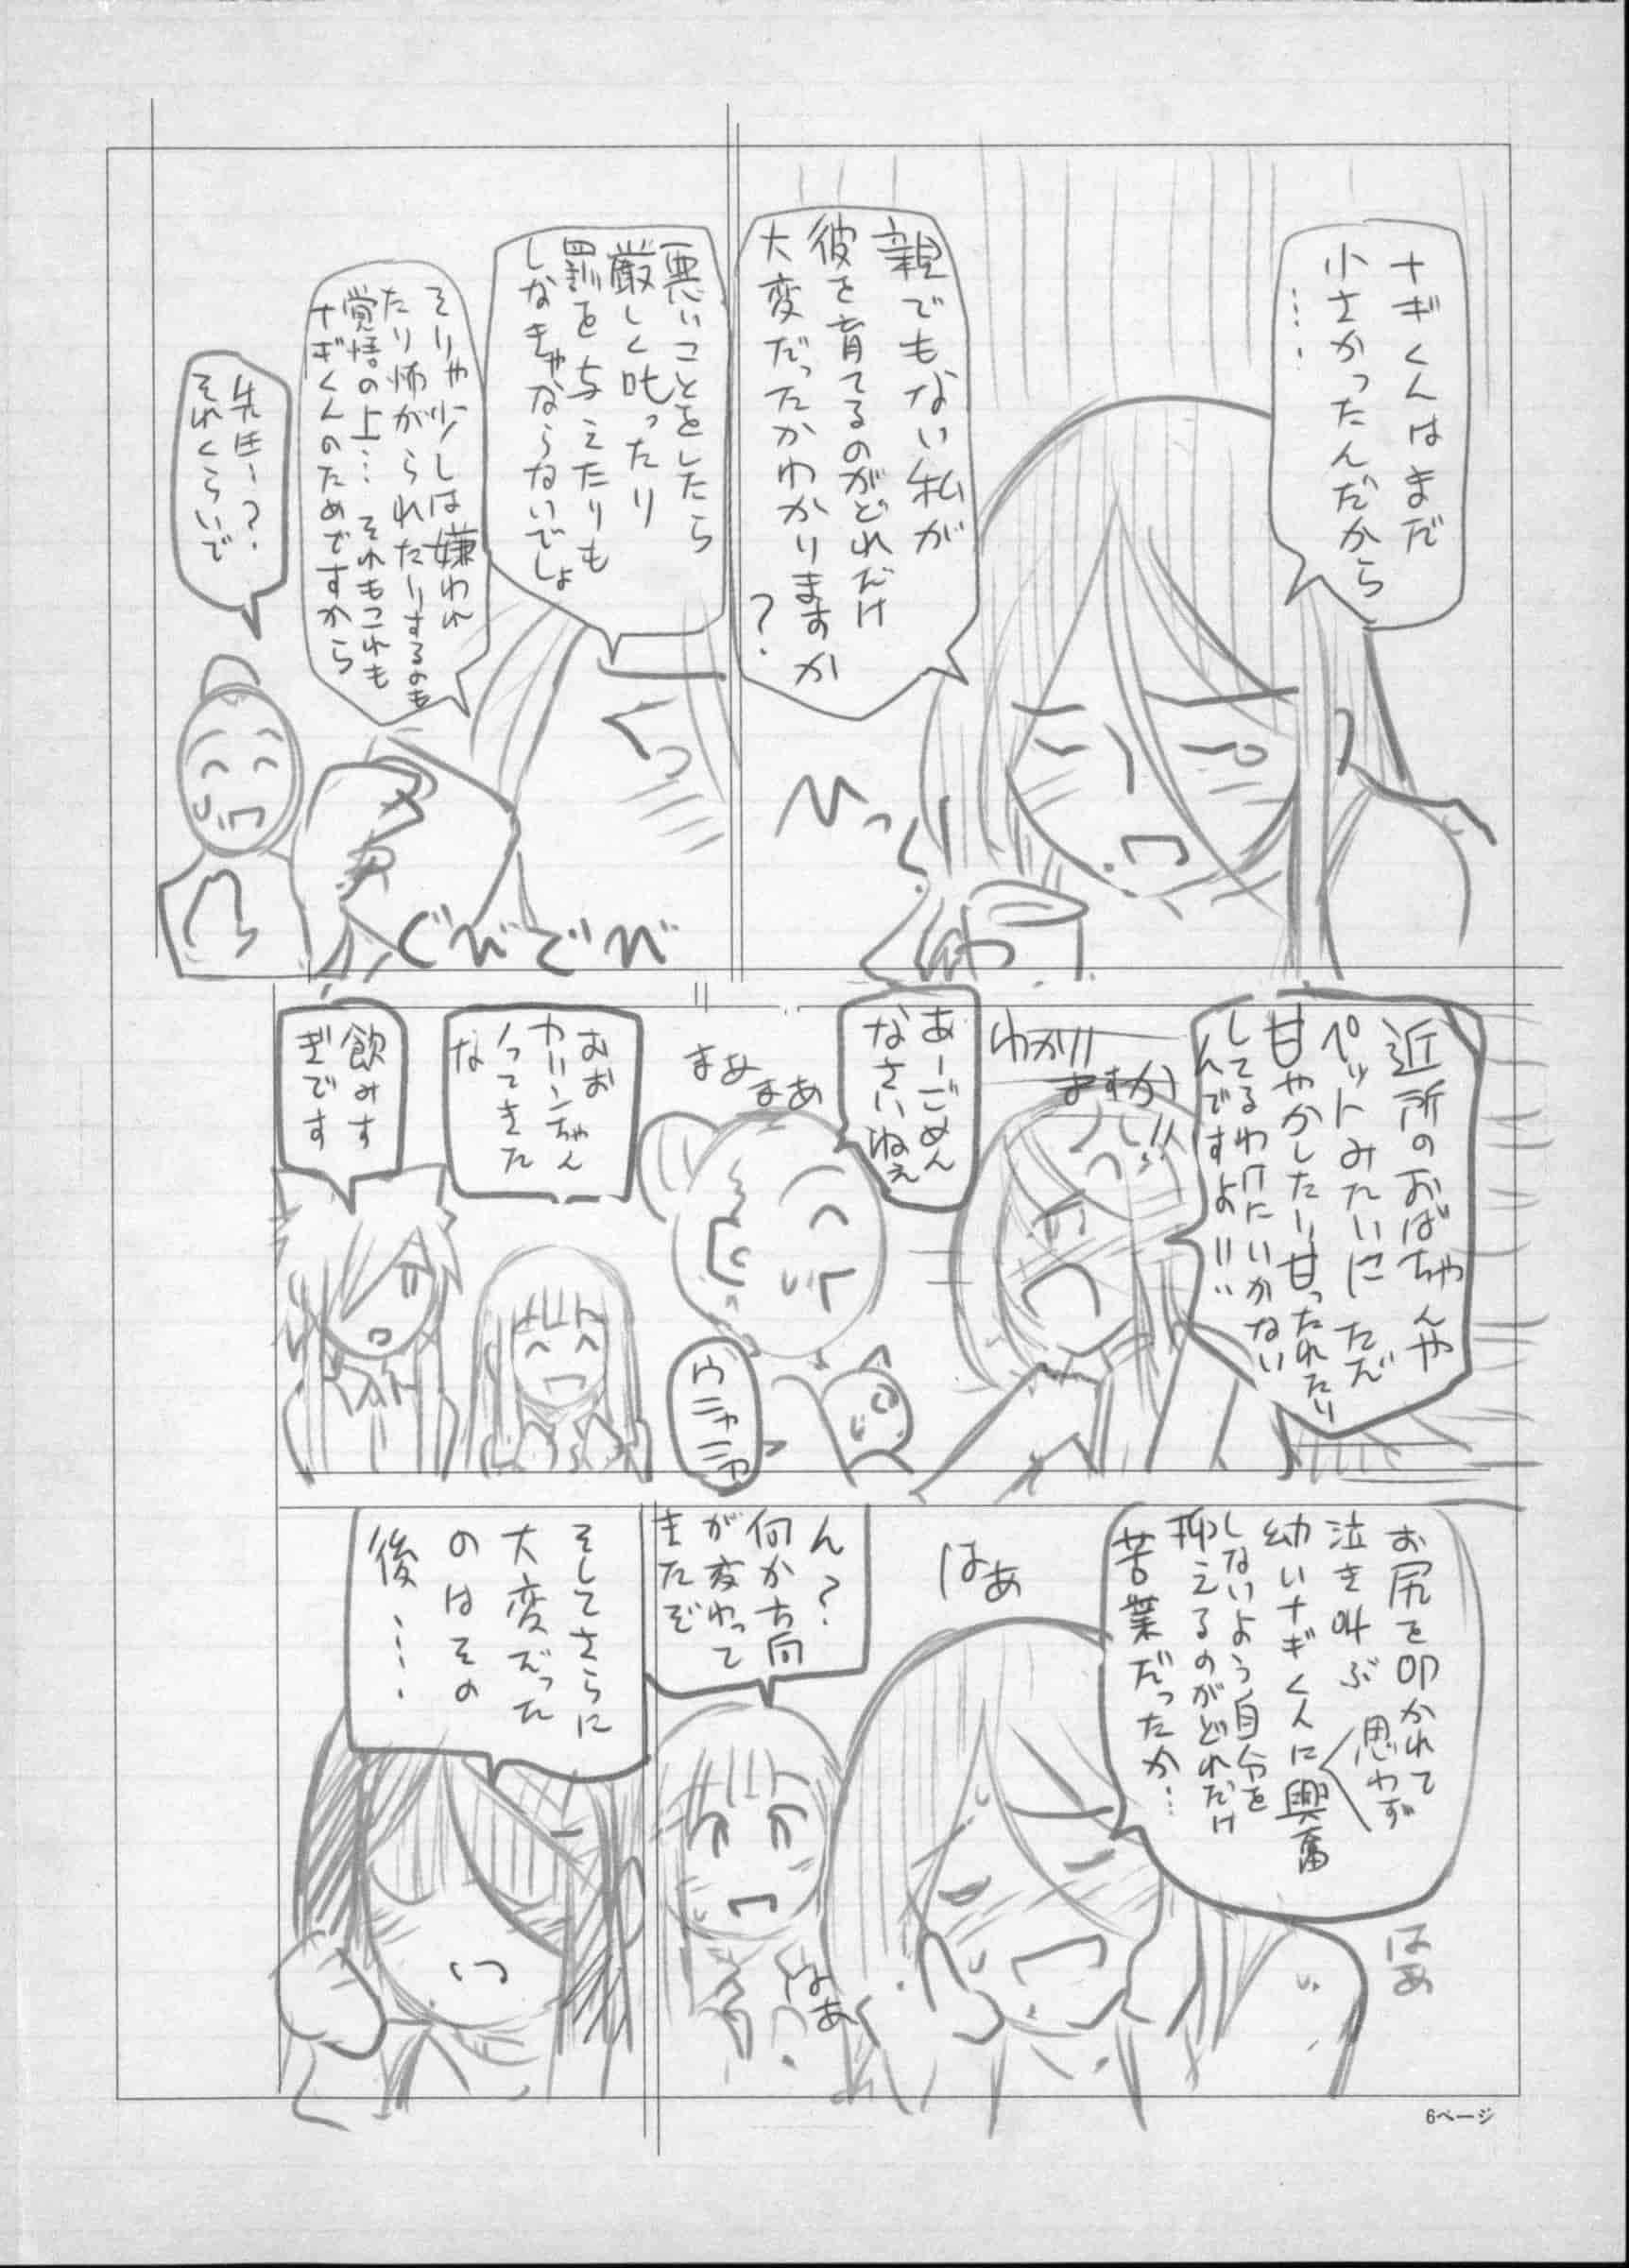 ナギくんはまだ
小さかったんだから
……
親でもない私が
彼を育てるのがどれだけ
大変だったかわかりますか
？
ひっく
悪いことをしたら
厳しく叱ったり
罰を与えたりも
しなきゃならないでしょ
そりゃ少しは嫌われ
たり怖がられたりするのも
覚悟の上… それもこれも
ナギくんのためですから
先生ー？
それくらいで
ぐびぐび
近所のおばちゃんや
ペットみたいにただ
甘やかしたり甘ったれたり
してるわけにいかない
んですよ!!
わかり
ますか!!
あーごめん
なさいねぇ
まぁ
まぁ
ウニャニャ
おお
カリンちゃん
ノってきた
な
飲みす
ぎです
はぁ
はぁ
ん？
何か方向
が変わって
きたぞ
はぁ
そしてさらに
大変だった
のはその
後……
6ページ